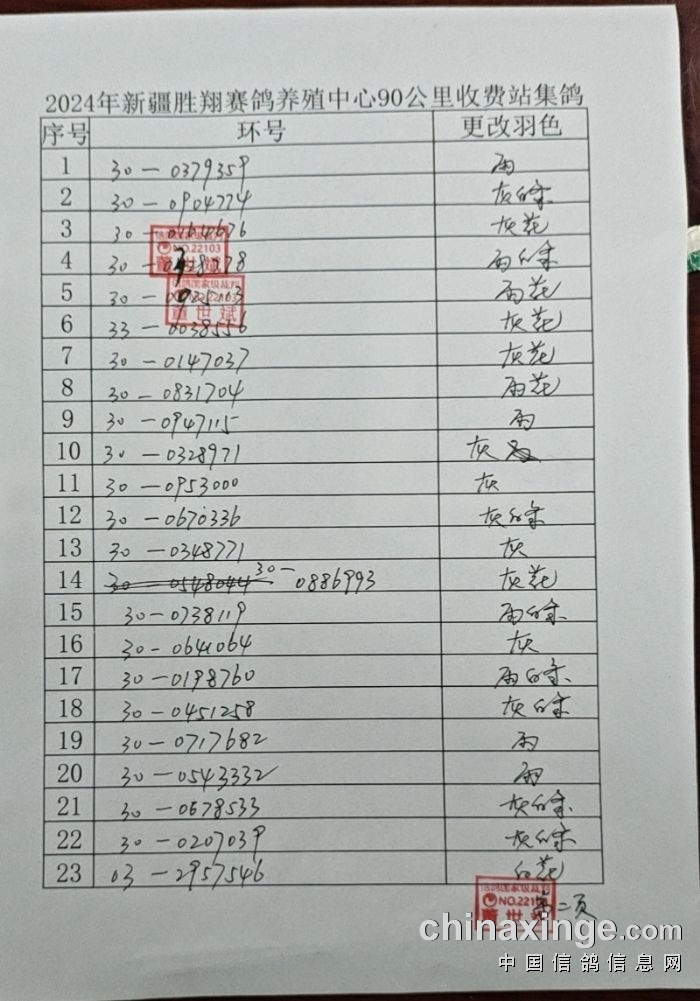 2024年新疆胜翔赛鸽养殖中心90公里收费站集鸽
序号 环号 更改羽色
1 30-0379359 雨
2 30-0904774 灰白条
3 30-0164676 灰花
4 30- 雨白条
5 30- 雨花
6 33-0038556 灰花
7 30-0147037 灰花
8 30-0831704 雨花
9 30-0947115 雨
10 30-0328971 灰
11 30-0953000 灰
12 30-0670336 灰白条
13 30-0348771 灰
14 30-0548044 30-0886993 灰花
15 30-0738119 雨白条
16 30-0641064 灰
17 30-0198760 雨白条
18 30-0451258 灰白条
19 30-0717682 雨
20 30-0543332 雨
21 30-0678533 灰白条
22 30-0207039 灰白条
23 03-2957546 白花
信鸽国家级裁判
NO.22103
董世斌
信鸽国家级裁判
NO.22103
董世斌
信鸽国家级裁判
NO.22103
董世斌
第二页
chinaxinge.com
中国信鸽信息网